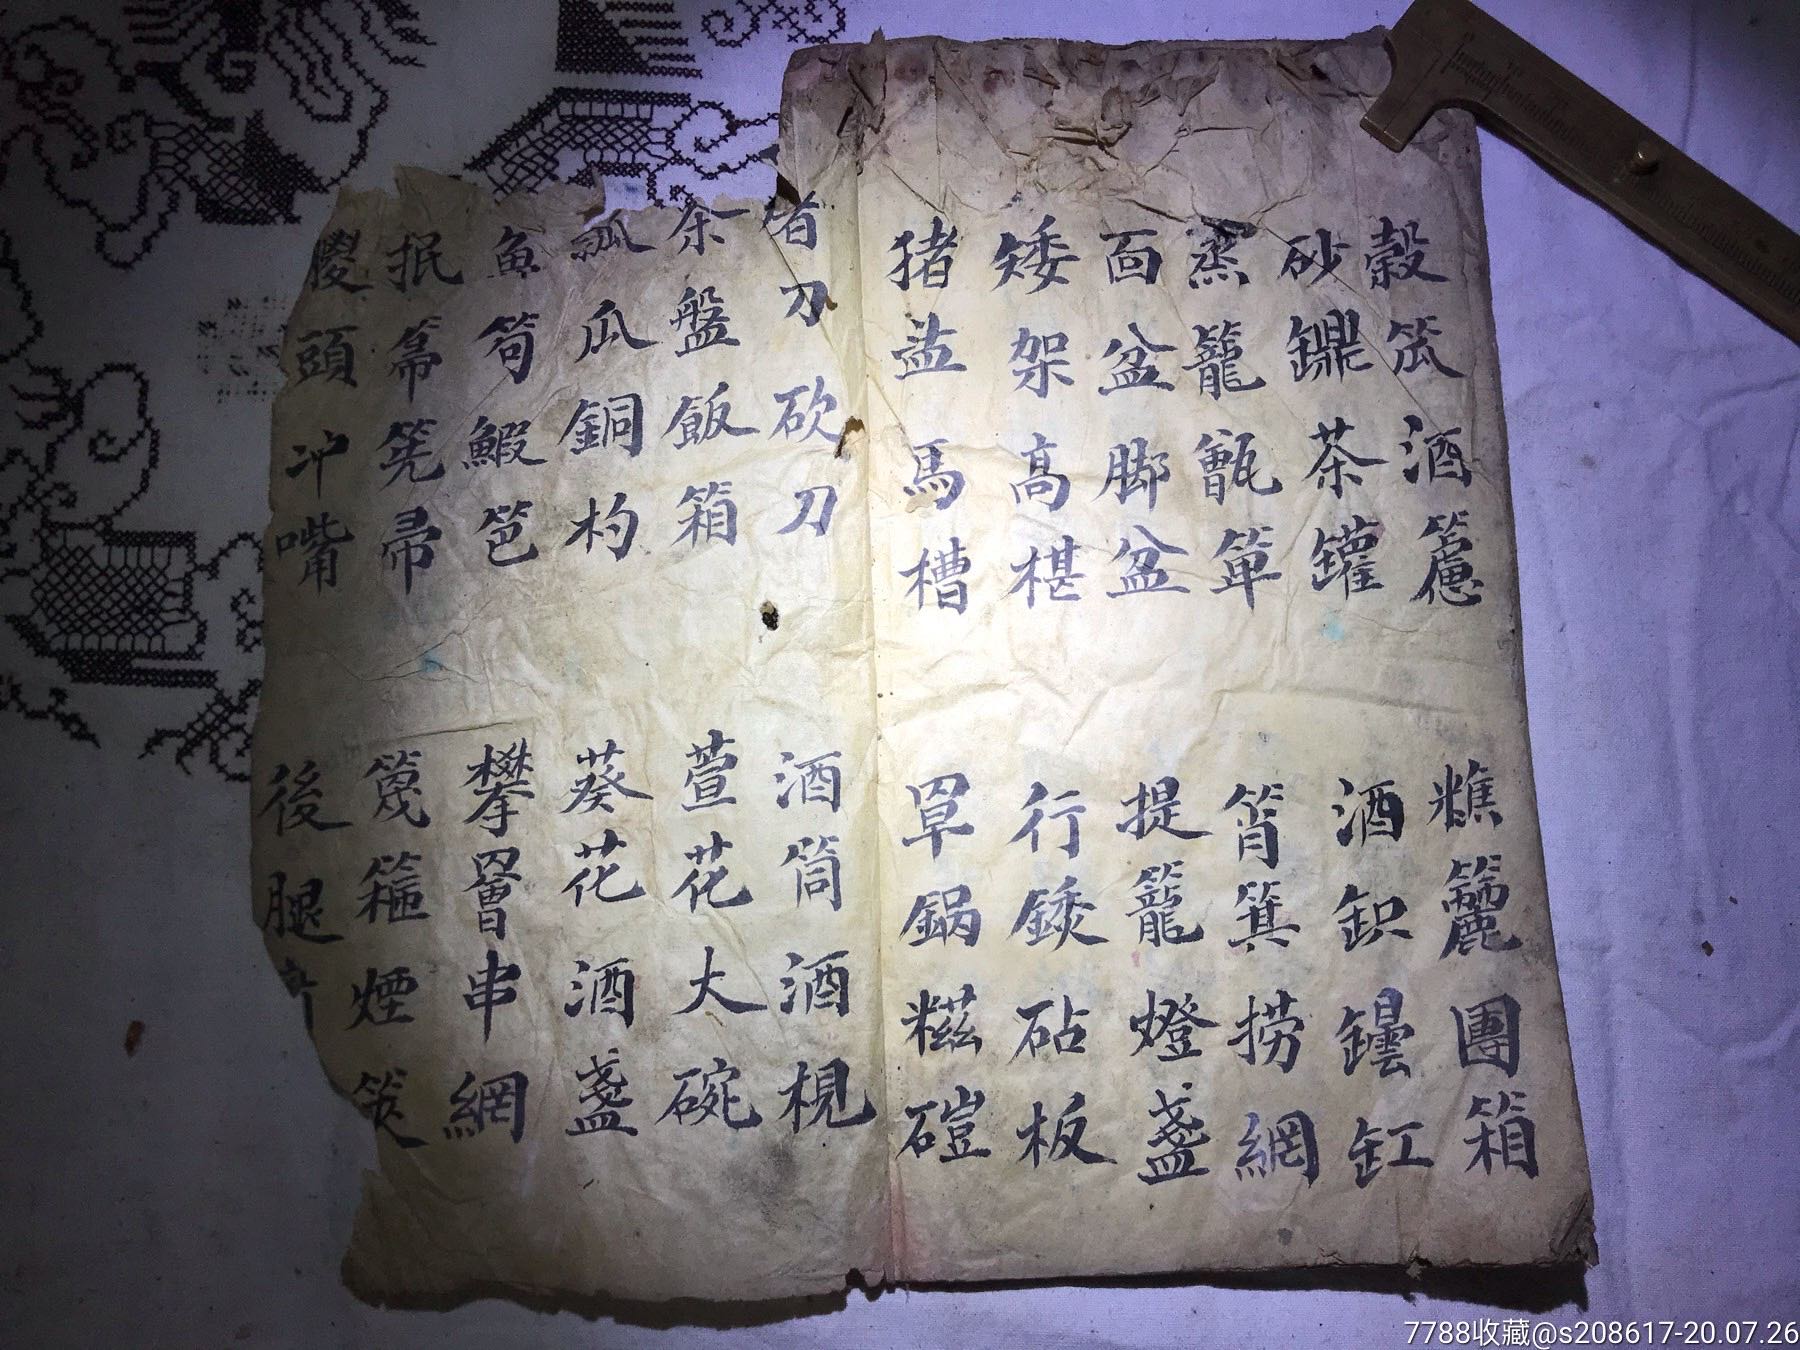 穀笟酒簏
糕籭團箱
砂鐤茶罐
酒鉙罎缸
蒸籠甑箄
筲箕捞網
面盆脚盆
提籠燈盞
矮架高椹
行錗砧板
猪盂馬槽
罩鍋糍磑
刀砍刀
酒筒酒梘
茶盤飯箱
萱花大碗
瓜銅杓
葵花酒盞
魚笱鰕笆
攀罾串網
抿箒筅帚
篾箍煙
頭冲嘴
後腿
7788收藏@s208617-20.07.26